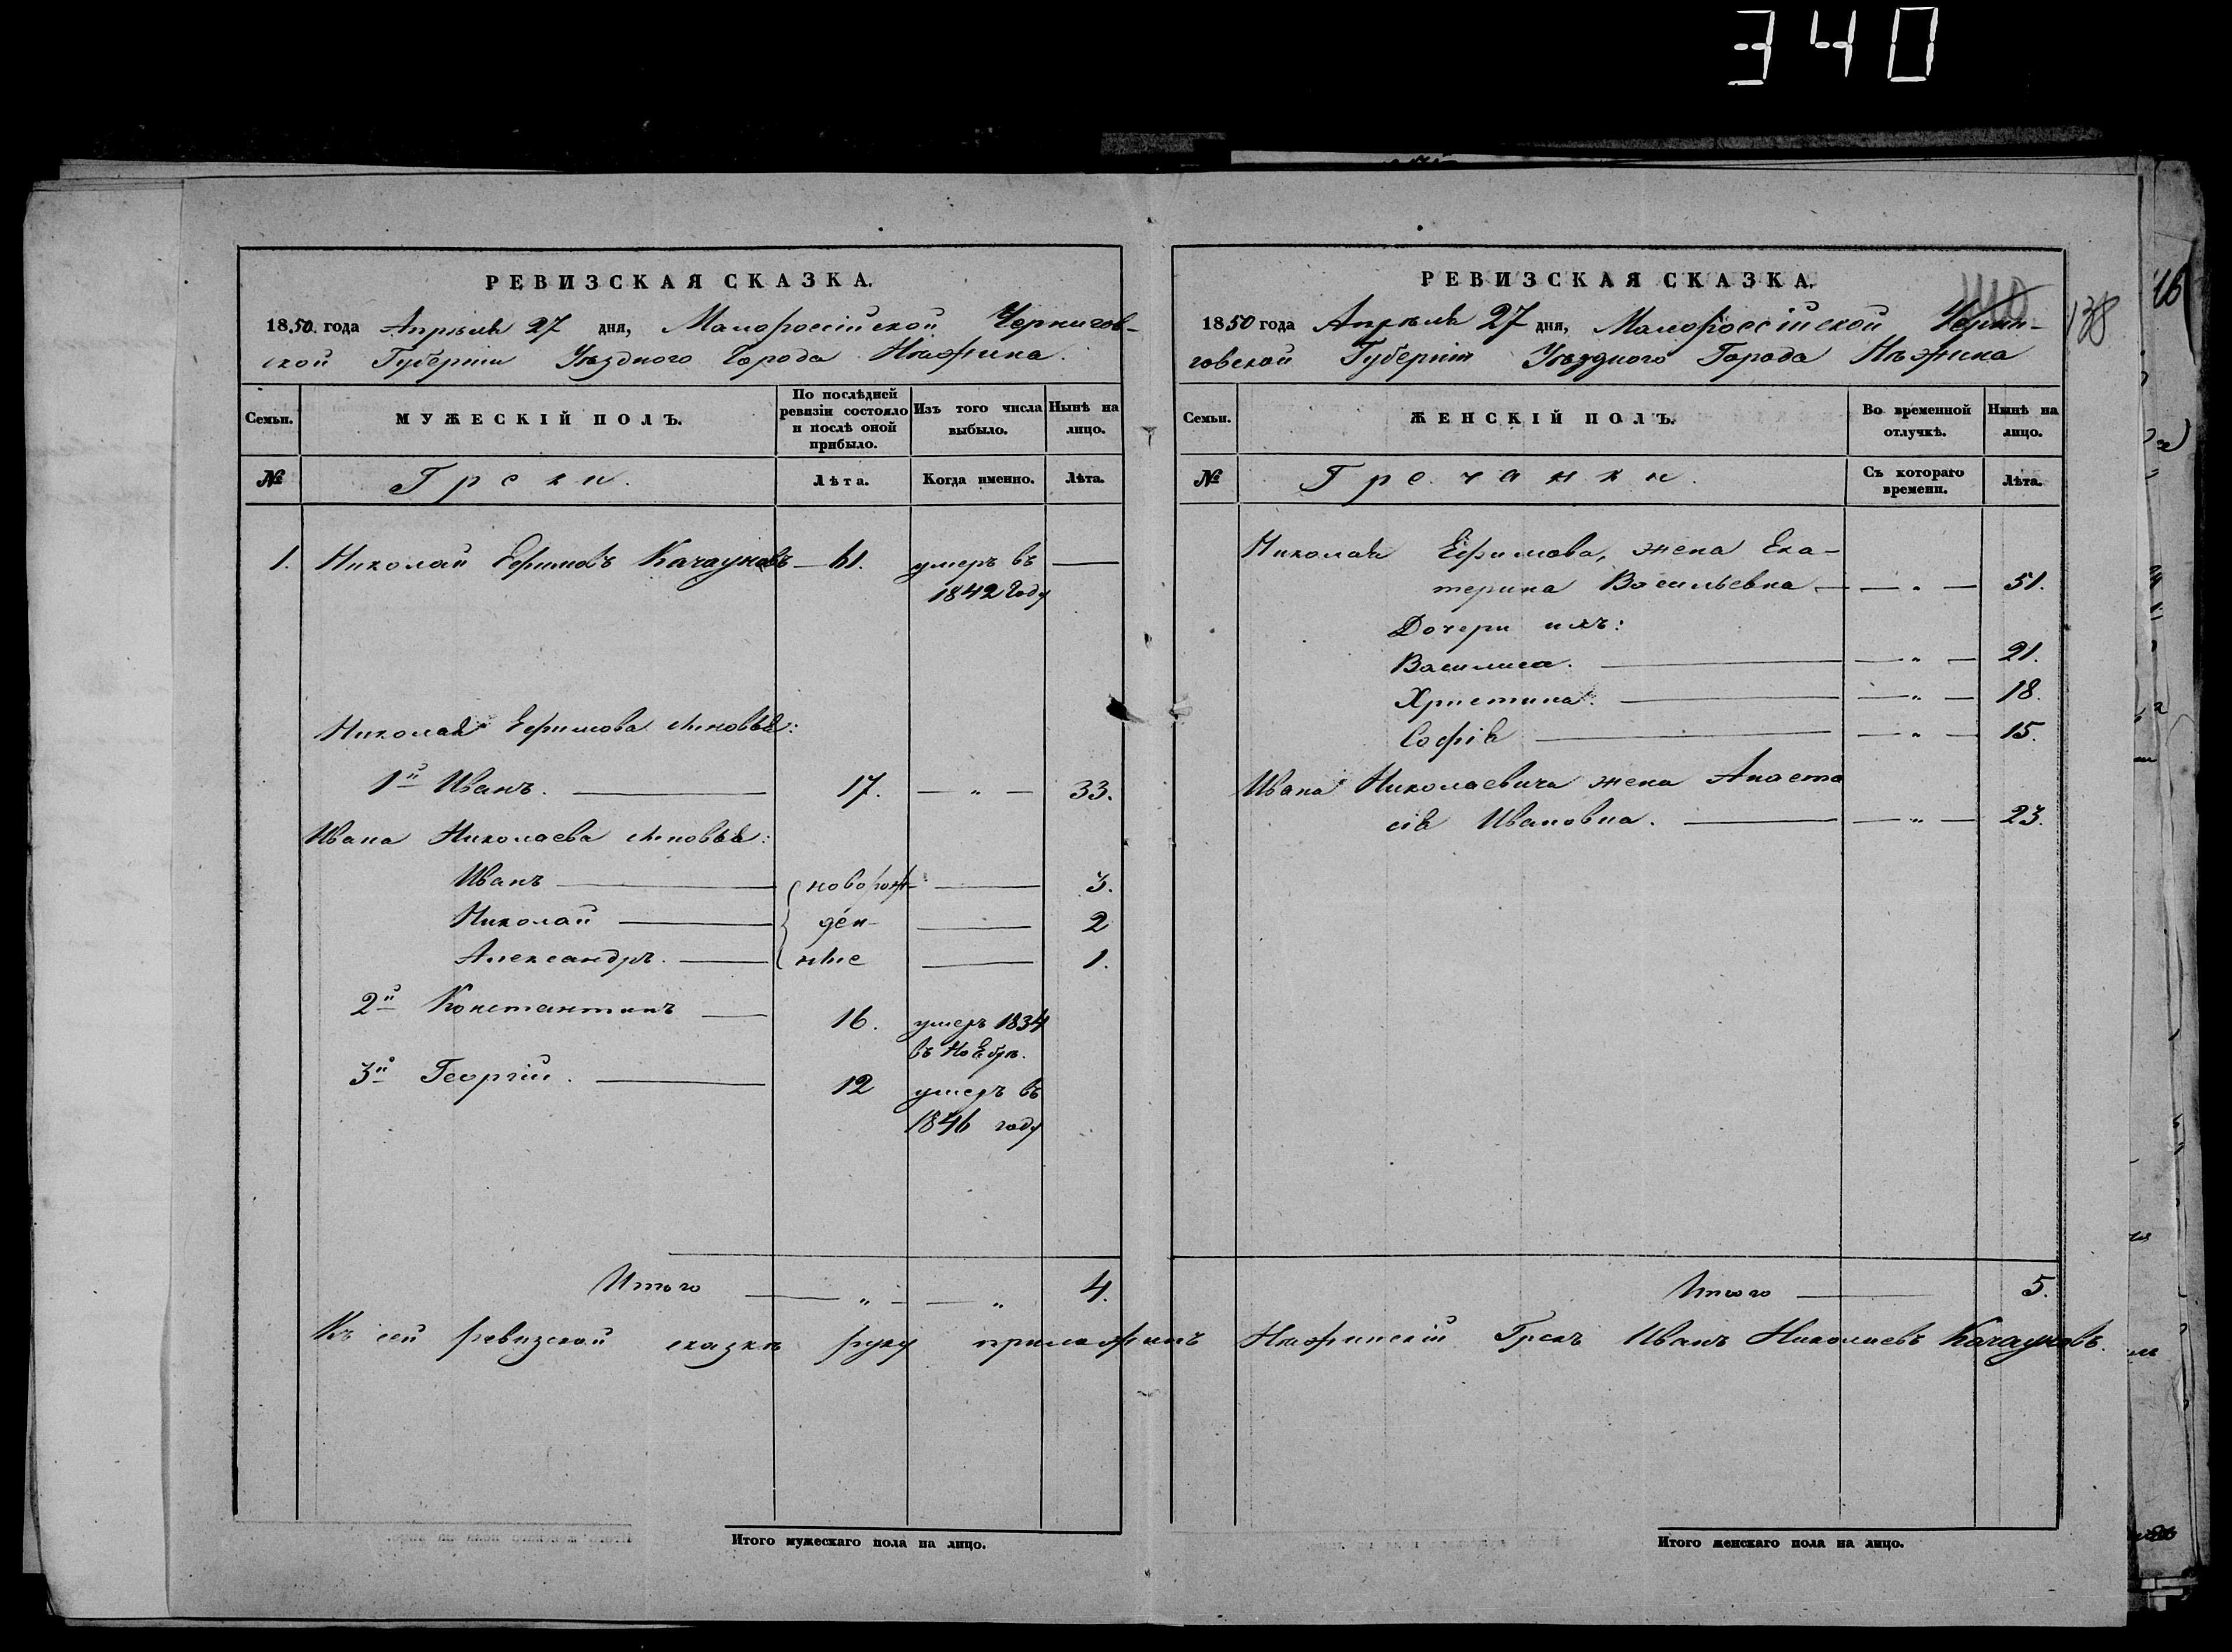 340
РЕВИЗСКАЯ СКАЗКА.
1850 года Апрѣля 27 дня, Малороссійской Чернигов-
ской Губерніи Уѣзднаго Города Нѣжина.
Семьи.
МУЖЕСКІЙ ПОЛЪ.
По послѣдней ревизіи состояло и послѣ оной прибыло.
Изъ того числа выбыло.
Нынѣ на лицо.
№
Греки.
Лѣта.
Когда именно.
Лѣта.
1. Николай Ефимовъ Качауновъ — 61. умеръ въ —
1842 Году
Николая Ефимова сыновья:
1й Иванъ. — 17. — „ — 33.
Ивана Николаева сыновья:
Иванъ — новорож- — 3.
Николай — ден- — 2
Александръ. — ные — 1.
2й Константинъ — 16. умеръ 1834
въ Ноябрѣ.
3й Георгій. — 12 умеръ въ
1846 году
Итого — „ — — „ 4.
Итого мужескаго пола на лицо.
РЕВИЗСКАЯ СКАЗКА.
138
16
1850 года Апрѣля 27 дня, Малороссійской Черни-
говской Губерніи Уѣзднаго Города Нѣжина
Семьи.
ЖЕНСКІЙ ПОЛЪ.
Во временной отлучкѣ.
Нынѣ на лицо.
№
Гречанки.
Съ котораго времени.
Лѣта.
Николая Ефимова, жена Ека-
терина Васильевна — — „ — 51.
Дочери ихъ:
Василиса. — — „ — 21.
Христина. — — „ — 18.
Софія — — „ — 15.
Ивана Николаевича жена Анаста
сія Ивановна. — — „ — 23.
Итого — 5.
Къ сей ревизской сказкѣ руку приложилъ Нѣжинскій Грекъ Иванъ Николаевъ Качауновъ.
Итого женскаго пола на лицо.